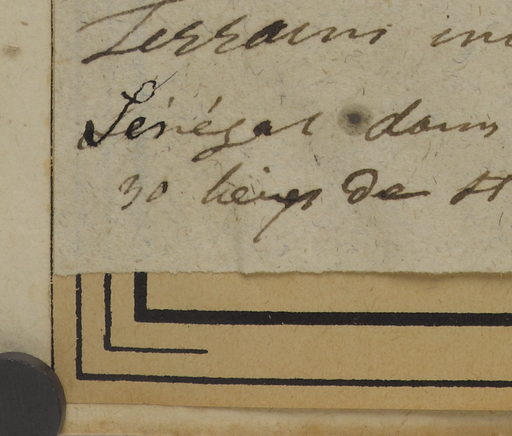 Terrains in
Sénégal dans
30 lieues de St